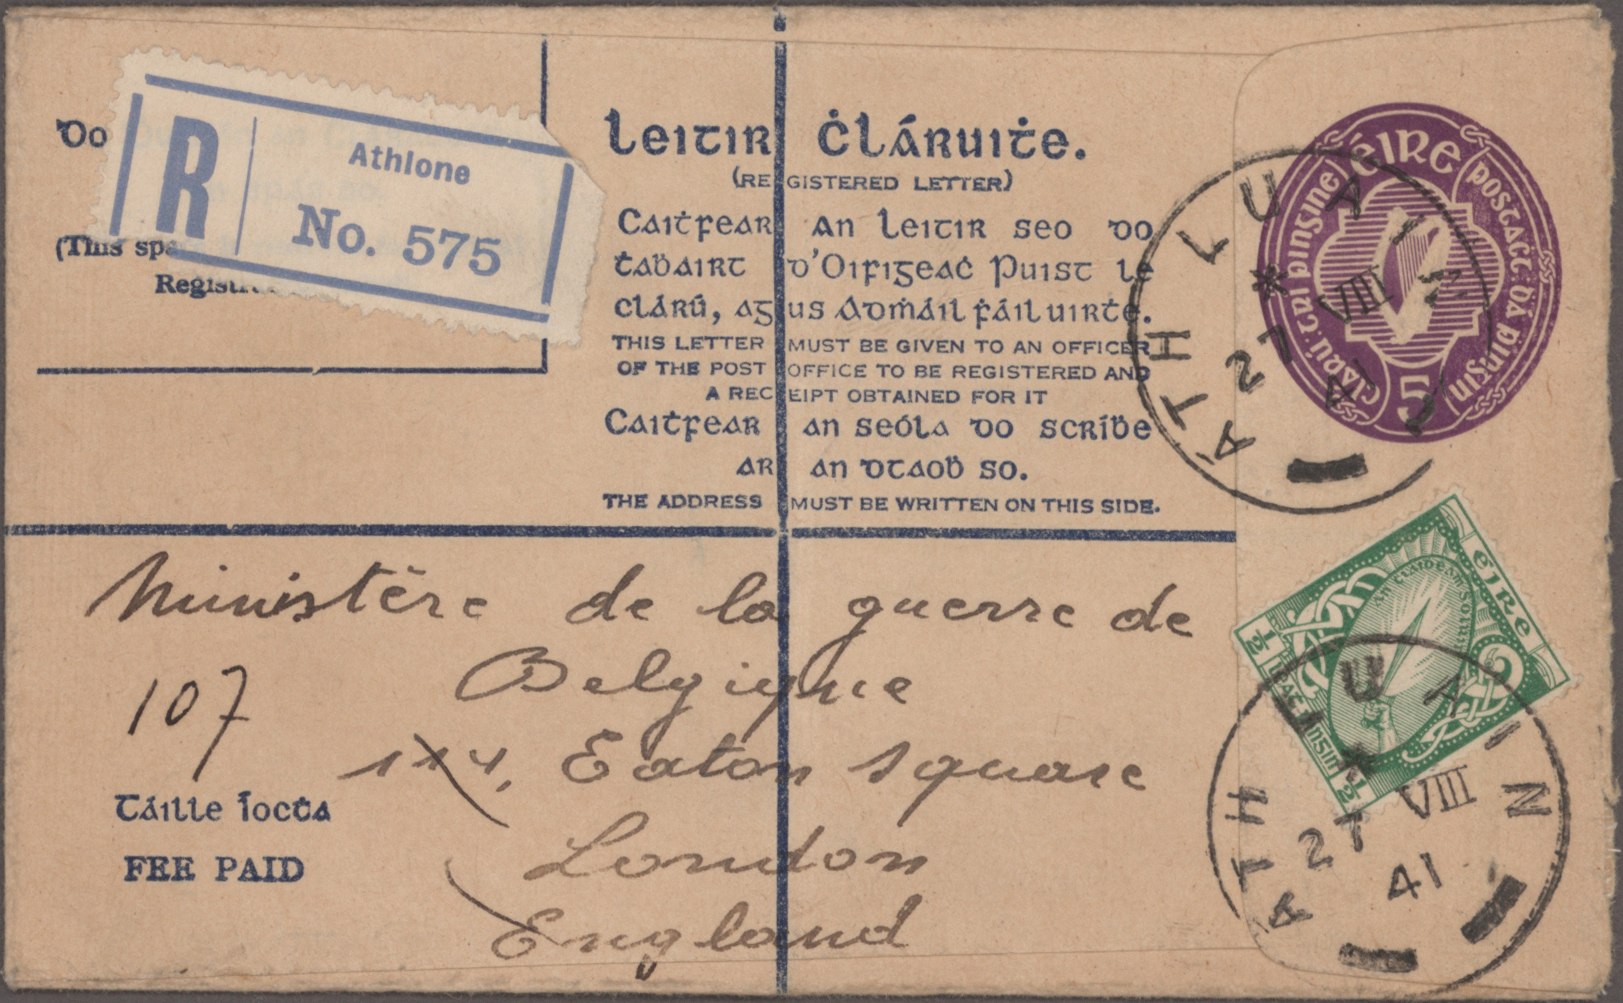 Do
R
Athlone
No. 575
(This spa
Registr
Leitir Ċláruiṫe.
(REGISTERED LETTER)
Caiṫfear an leitir seo do
ṫaḃairt d'Oifigeaċ Puist le
clárú, agus Admáil ḟáil uirṫe.
THIS LETTER MUST BE GIVEN TO AN OFFICER
OF THE POST OFFICE TO BE REGISTERED AND
A RECEIPT OBTAINED FOR IT
Caiṫfear an seóla do scríḃe
ar an dtaoḃ so.
THE ADDRESS MUST BE WRITTEN ON THIS SIDE.
ÉIRE
postas
dá pinġin
5
ÁTH LUAIN
27 VIII
41
éire
½
½
ÁTH LUAIN
27 VIII
41
Ministère de la guerre de
Belgique
107
114, Eaton Square
London
England
Táille Íocṫa
FEE PAID